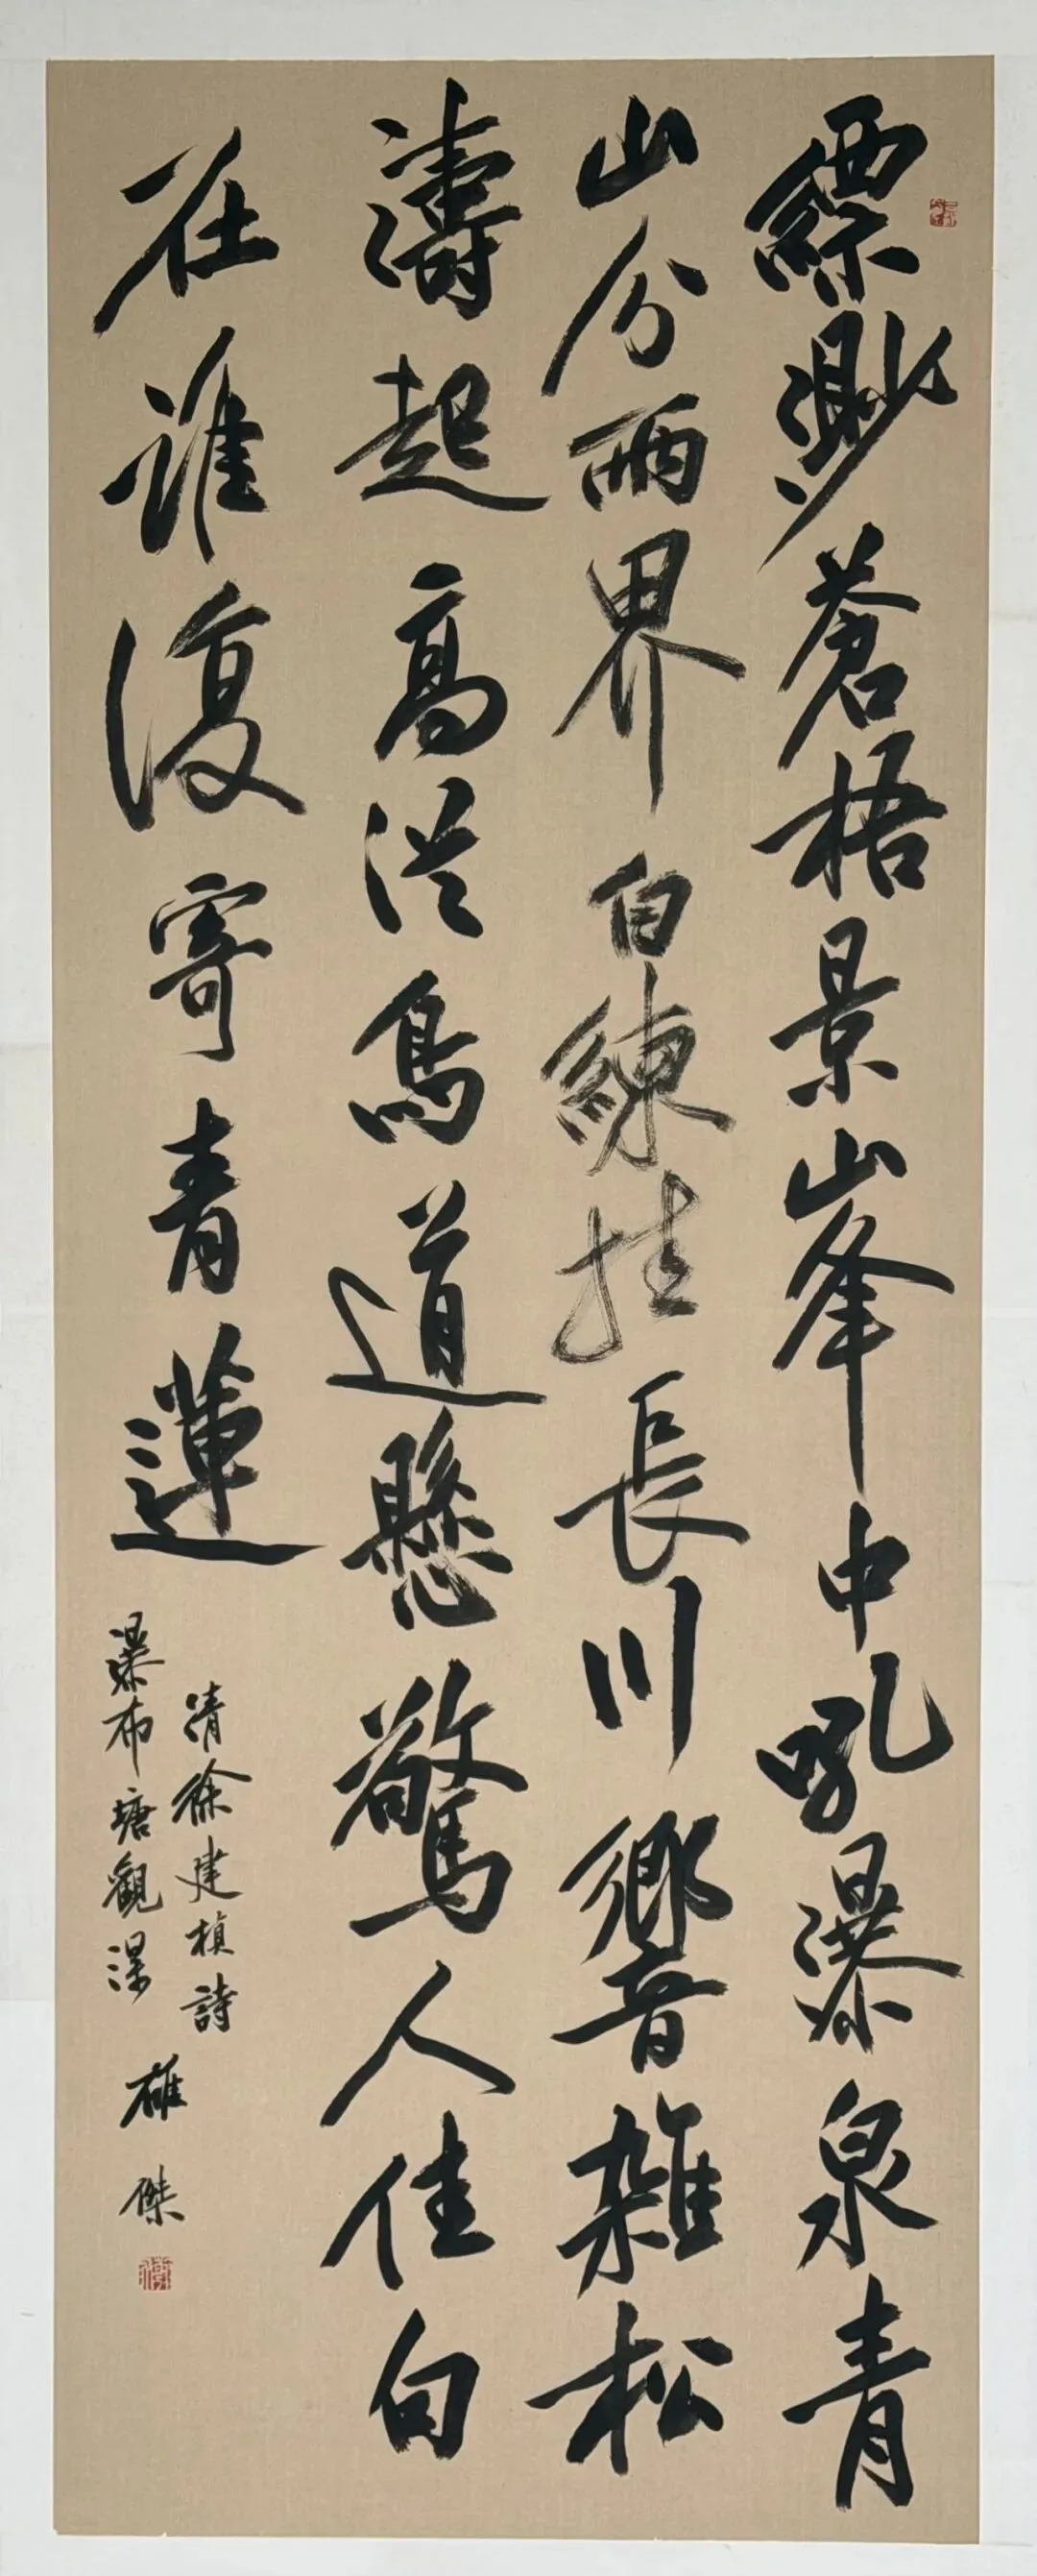 縹渺蒼梧景峯中吼瀑泉青
山分兩界白練挂長川響雜松
濤起高從鳥道懸驚人佳句
在誰復寄青蓮
清徐建楨詩
瀑布塘觀瀑 雄傑